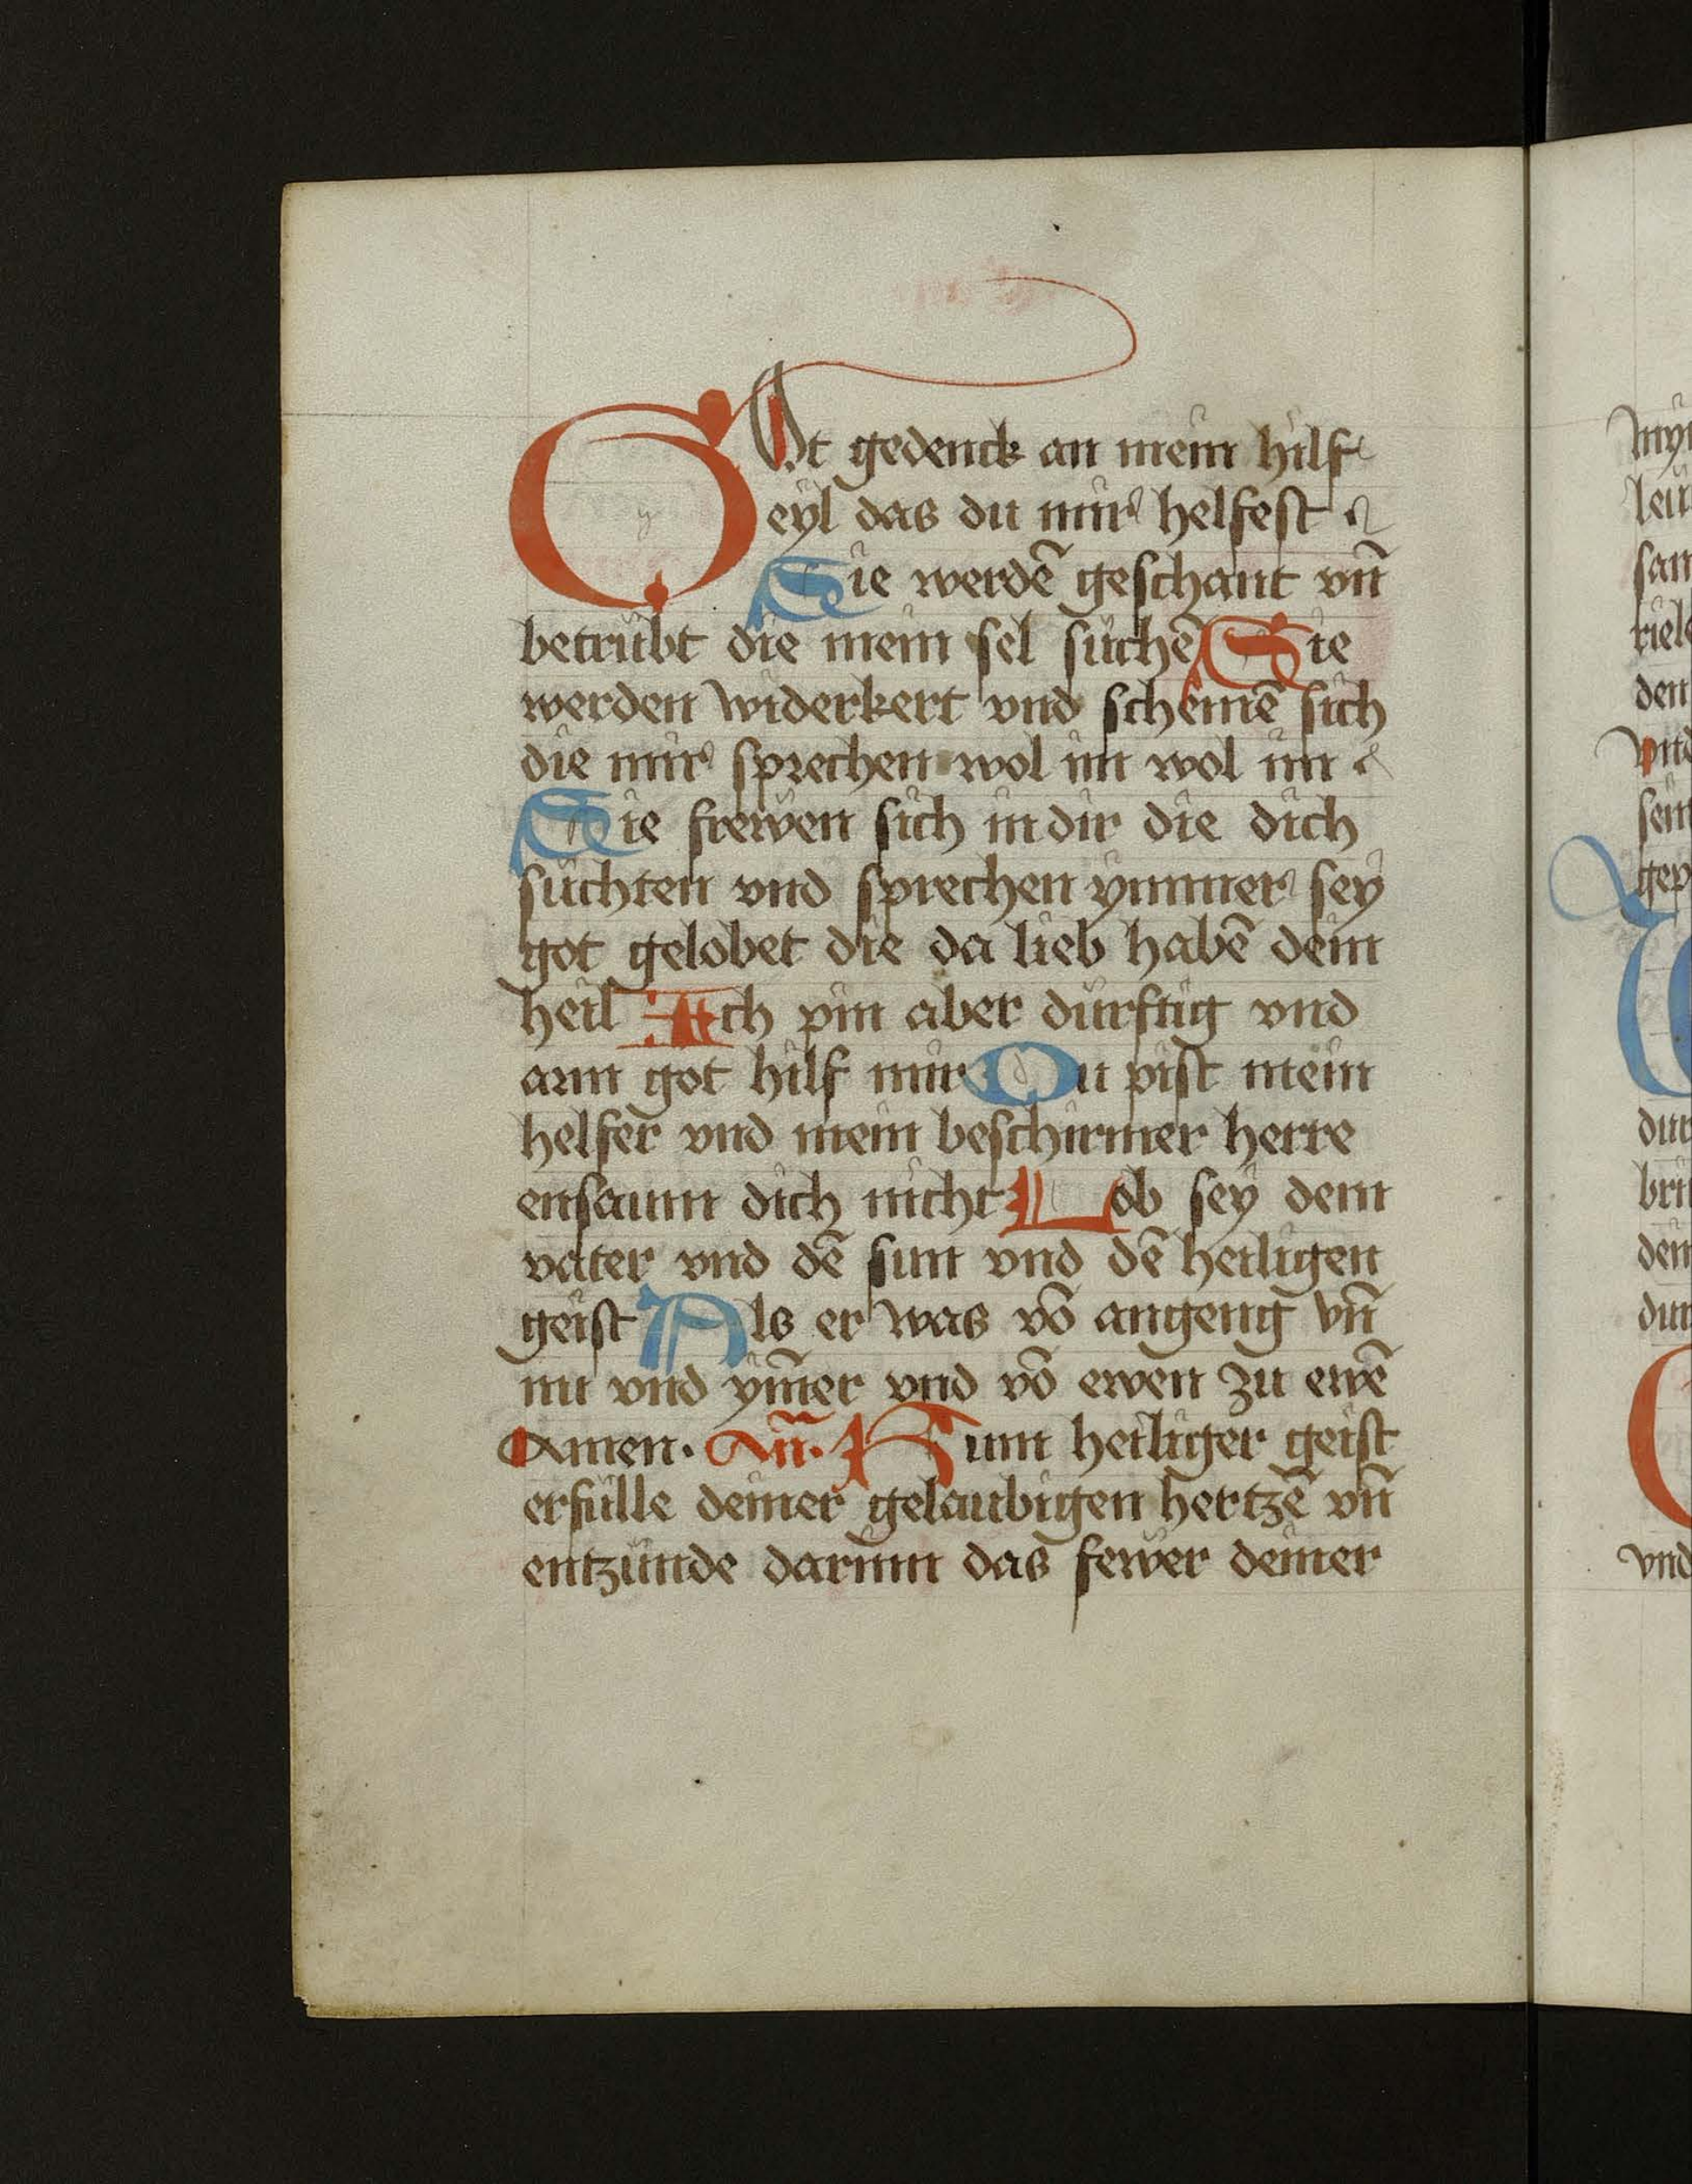 GOt gedenck an mein hilf
eyl das du mir helfest
Sie werdē geschant vn̄
betrübt die mein sel süchē Sie
werden widerkert vnd schemē sich
die mir sprechen wol im wol im
Sie frewen sich in dir die dich
süchten vnd sprechen ymmer sey
got gelobet die da lieb habē dein
heil Ich pin aber dürftig vnd
arm got hilf mir Du pist mein
helfer vnd mein beschirmer herre
ensaum dich nicht Lob sey dem
vater vnd dē sun vnd dē heiligen
geist Als er was vō angeng vn̄
nu vnd ym̄er vnd vō ewen zu ewē
Amen. An̄. Kum heiliger geist
erfülle deiner gelaubigen hertzē vn̄
entzünde darinn das fewer deiner